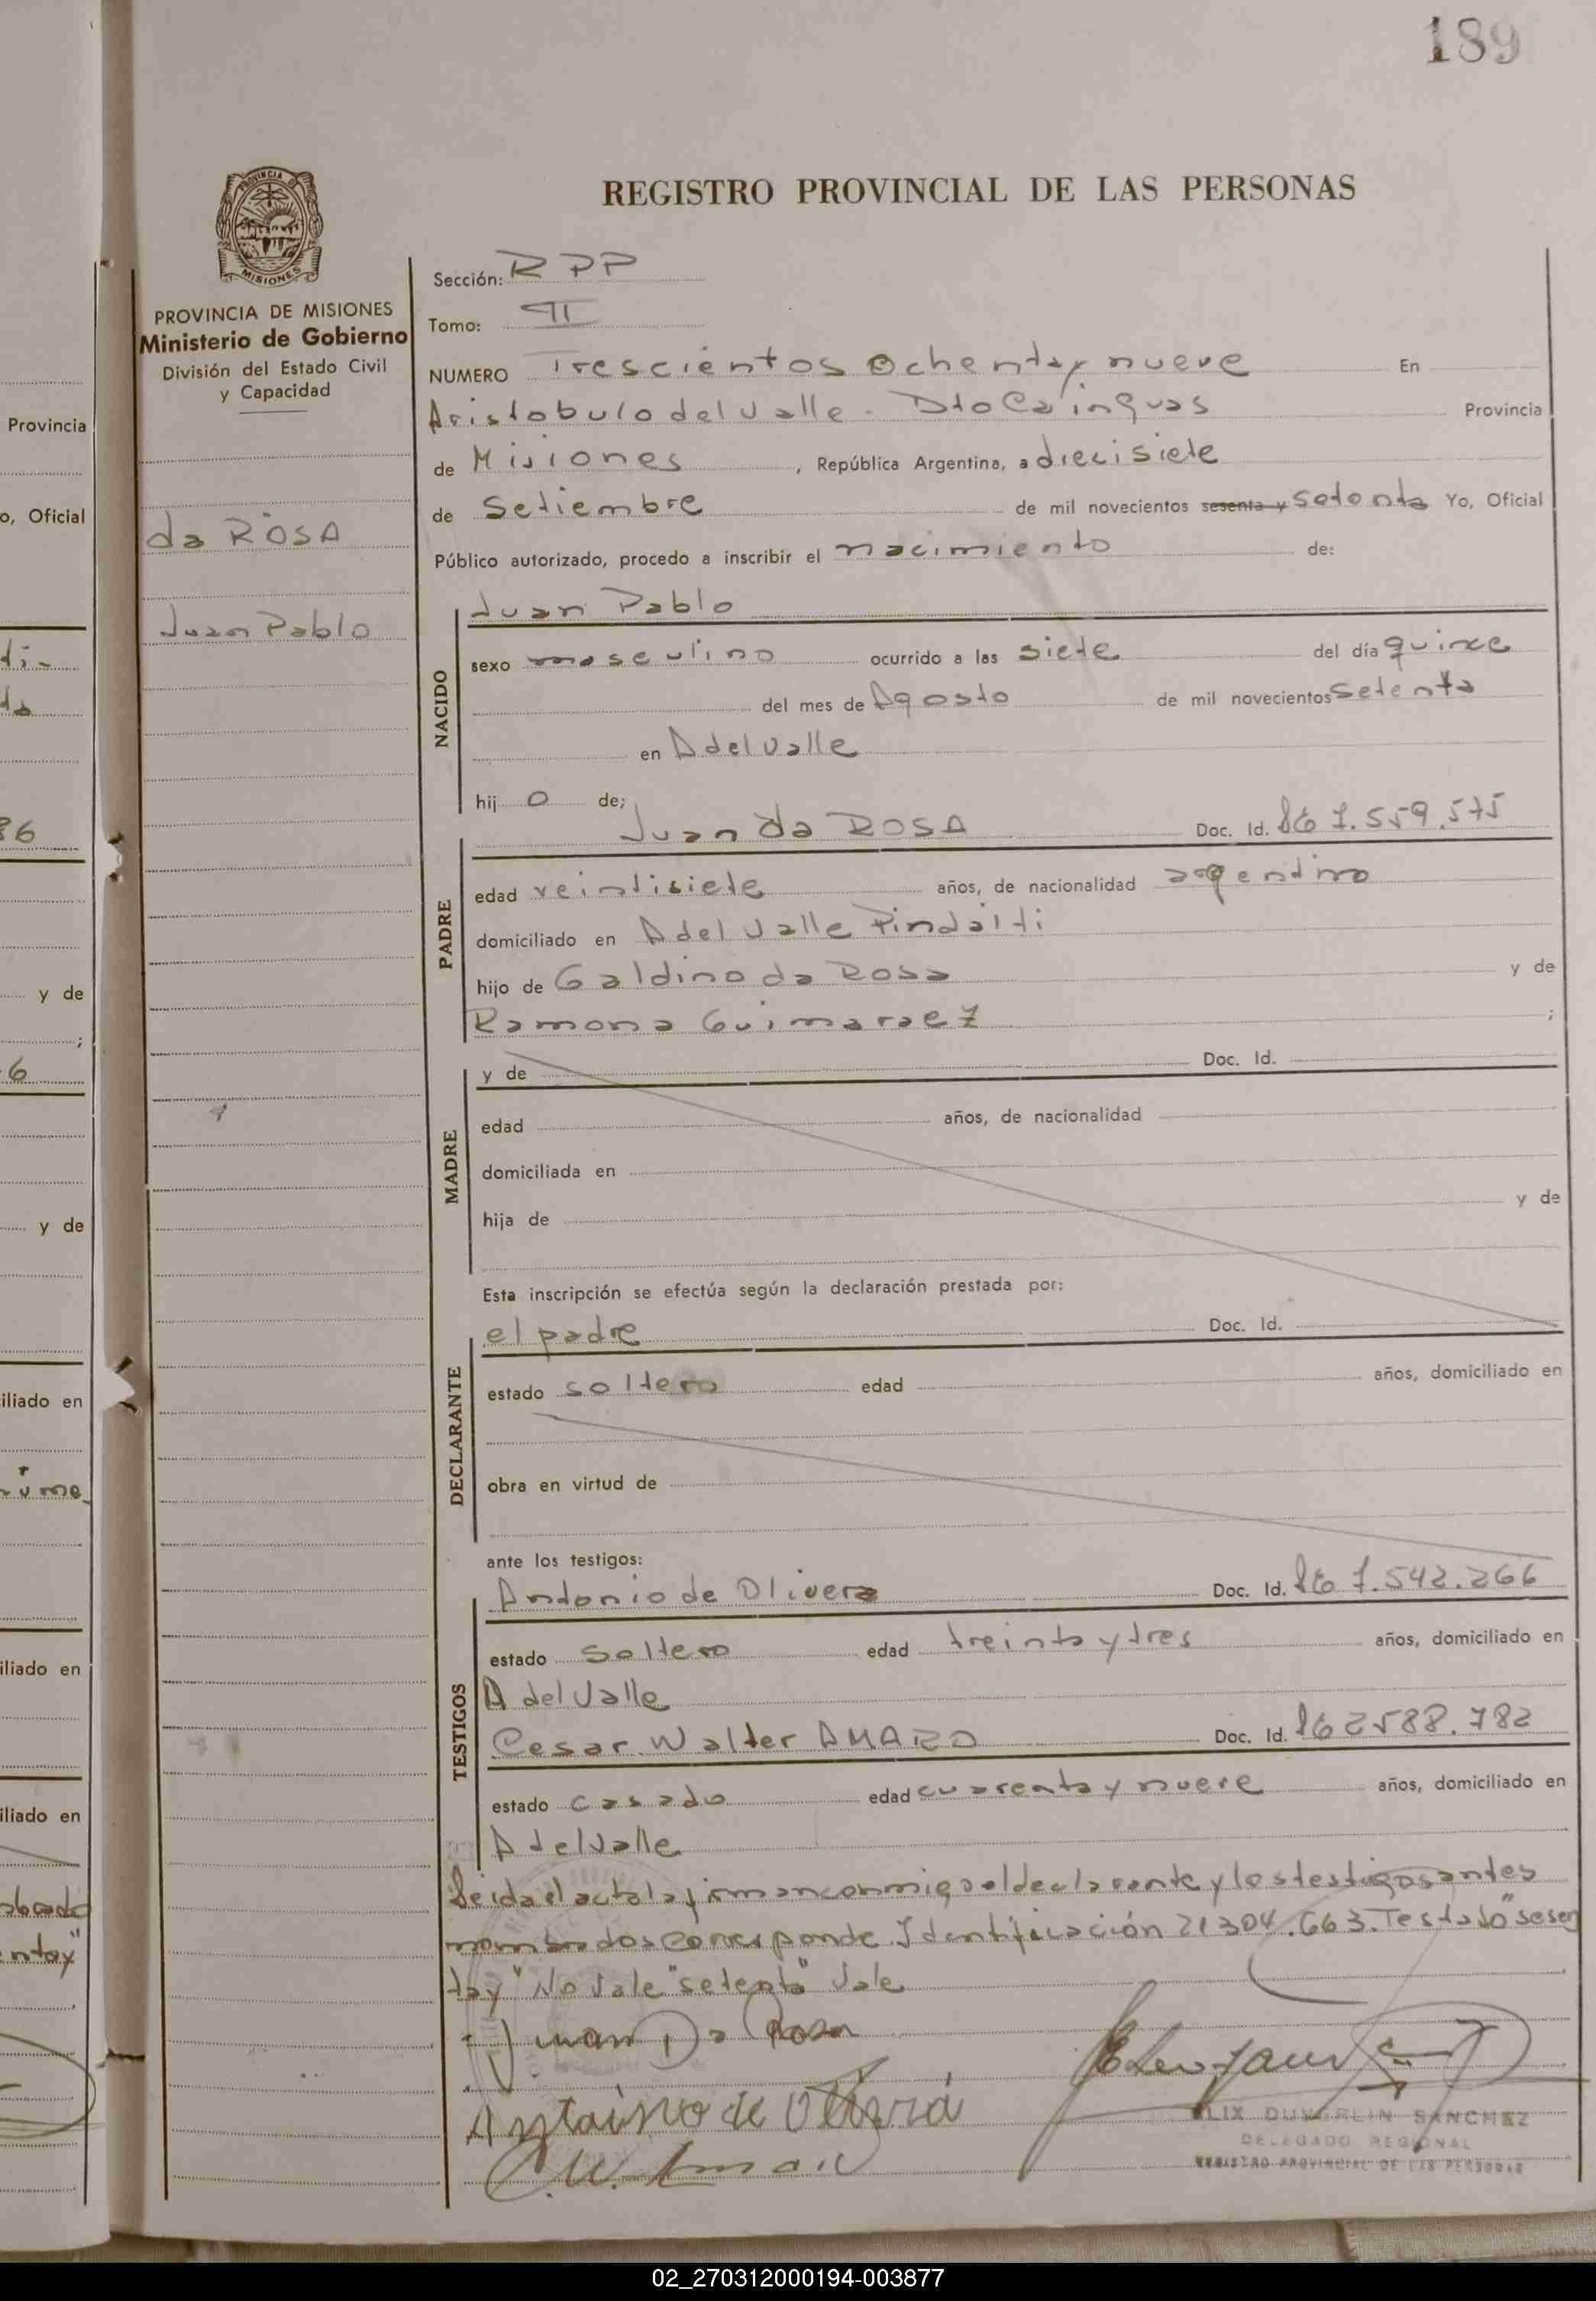 189
REGISTRO PROVINCIAL DE LAS PERSONAS
PROVINCIA DE MISIONES
MISIONES
PROVINCIA DE MISIONES
Ministerio de Gobierno
División del Estado Civil
y Capacidad
da ROSA
Juan Pablo
Sección: RPP
Tomo: II
NUMERO Trescientos ochenta y nueve En
Aristobulo del Valle - Dto Cainguas Provincia
de Misiones, República Argentina, a diecisiete
de Setiembre de mil novecientos sesenta y Setenta Yo, Oficial
Público autorizado, procedo a inscribir el nacimiento de:
Juan Pablo
NACIDO
sexo masculino ocurrido a las siete del día quince
del mes de Agosto de mil novecientos Setenta
en A del Valle
hij o de;
Juan da ROSA Doc. Id. LE 7.559.575
PADRE
edad veintisiete años, de nacionalidad argentino
domiciliado en A del Valle Pindaiti
hijo de Galdino da Rosa y de
Ramona Guimaraez ;
MADRE
y de Doc. Id.
edad años, de nacionalidad
domiciliada en
hija de y de
Esta inscripción se efectúa según la declaración prestada por:
el padre Doc. Id.
DECLARANTE
estado soltero edad años, domiciliado en
obra en virtud de
ante los testigos:
Antonio de Olivera Doc. Id. LE 7.542.266
TESTIGOS
estado Soltero edad treinta y tres años, domiciliado en
A del Valle
Cesar Walter AMARO Doc. Id. LE 2588.782
estado casado edad cuarenta y nueve años, domiciliado en
A del Valle
Leida el acta la firman conmigo el declarante y los testigos antes
nombrados corresponde Identificación 21304.663. Testado "sesen
ta y" No Vale "setenta" Vale
Juan Da Rosa
DUVERLIN SANCHEZ
DELEGADO REGIONAL
REGISTRO PROVINCIAL DE LAS PERSONAS
Provincia
o, Oficial
y de
;
y de
iliado en
iliado en
iliado en
02_270312000194-003877